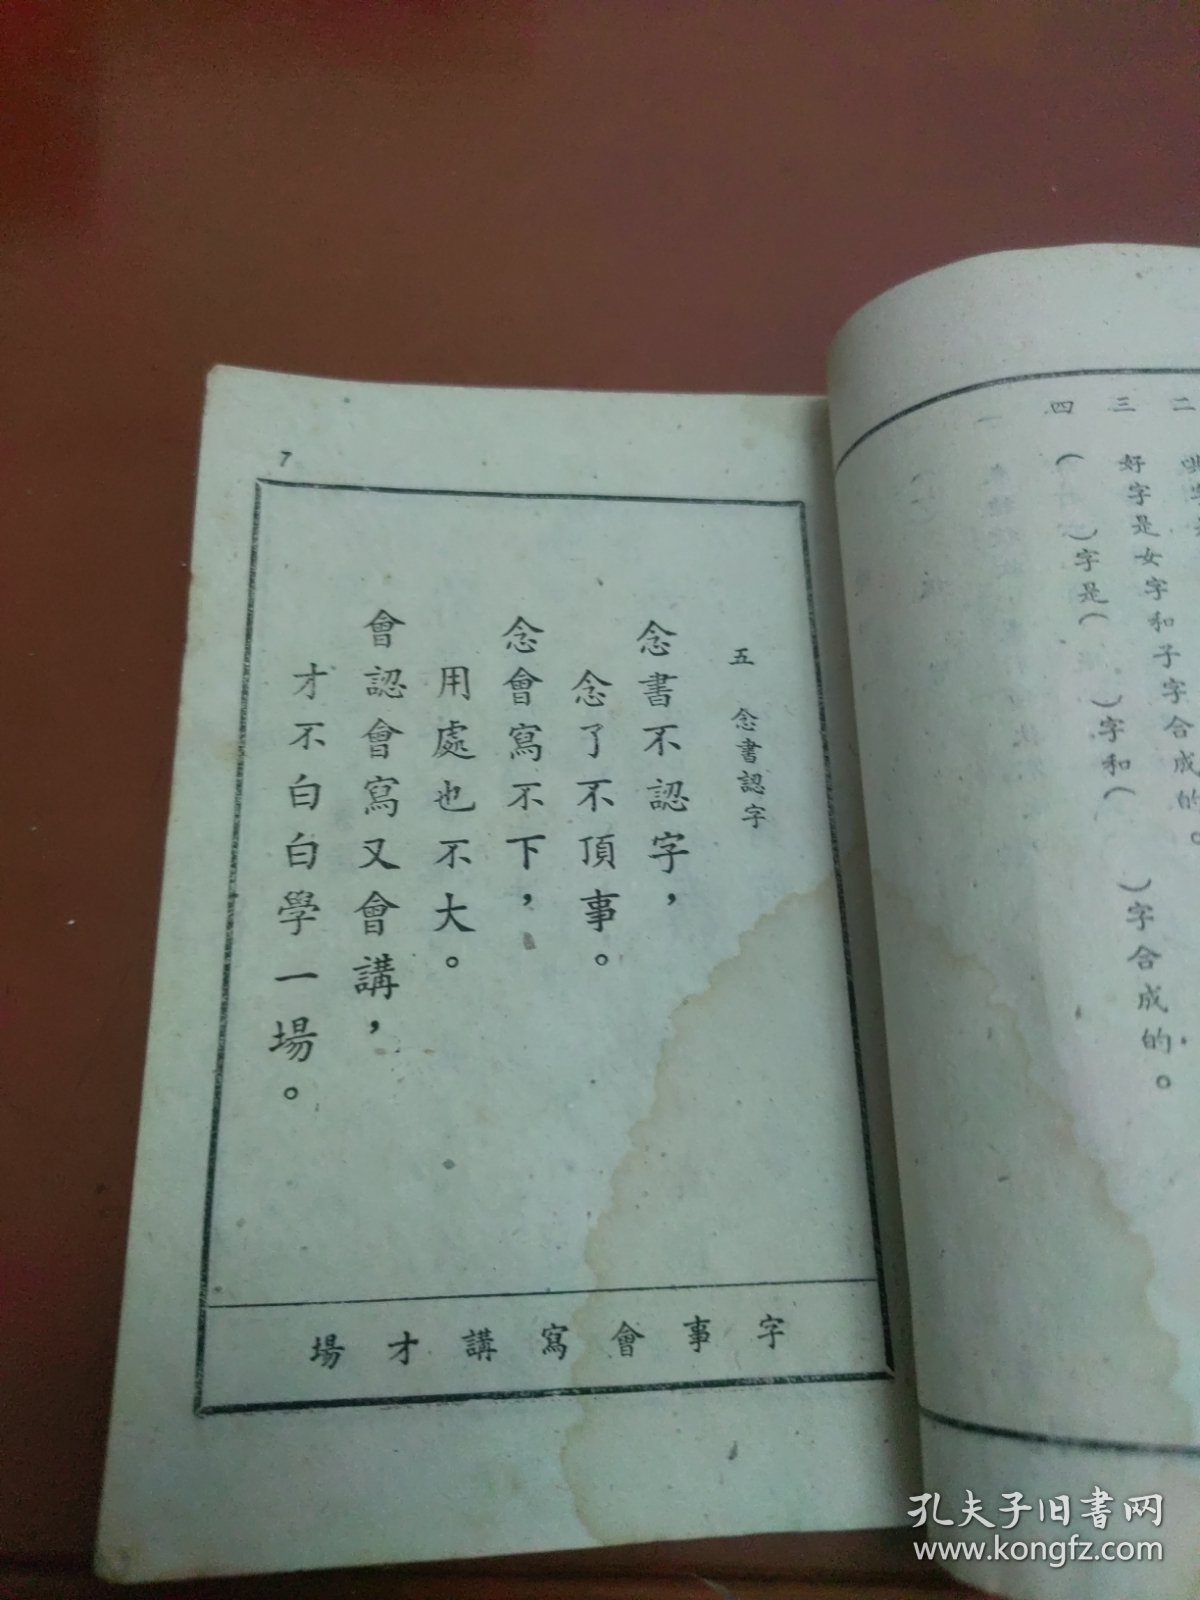 二
三 好字是女字和子字合成的。
四 ( )字是( )字和( )字合成的。
7
五 念書認字
念書不認字，
念了不頂事。
念會寫不下，
用處也不大。
會認會寫又會講，
才不白白學一場。
字事會寫講才場
孔夫子旧书网
www.kongfz.com